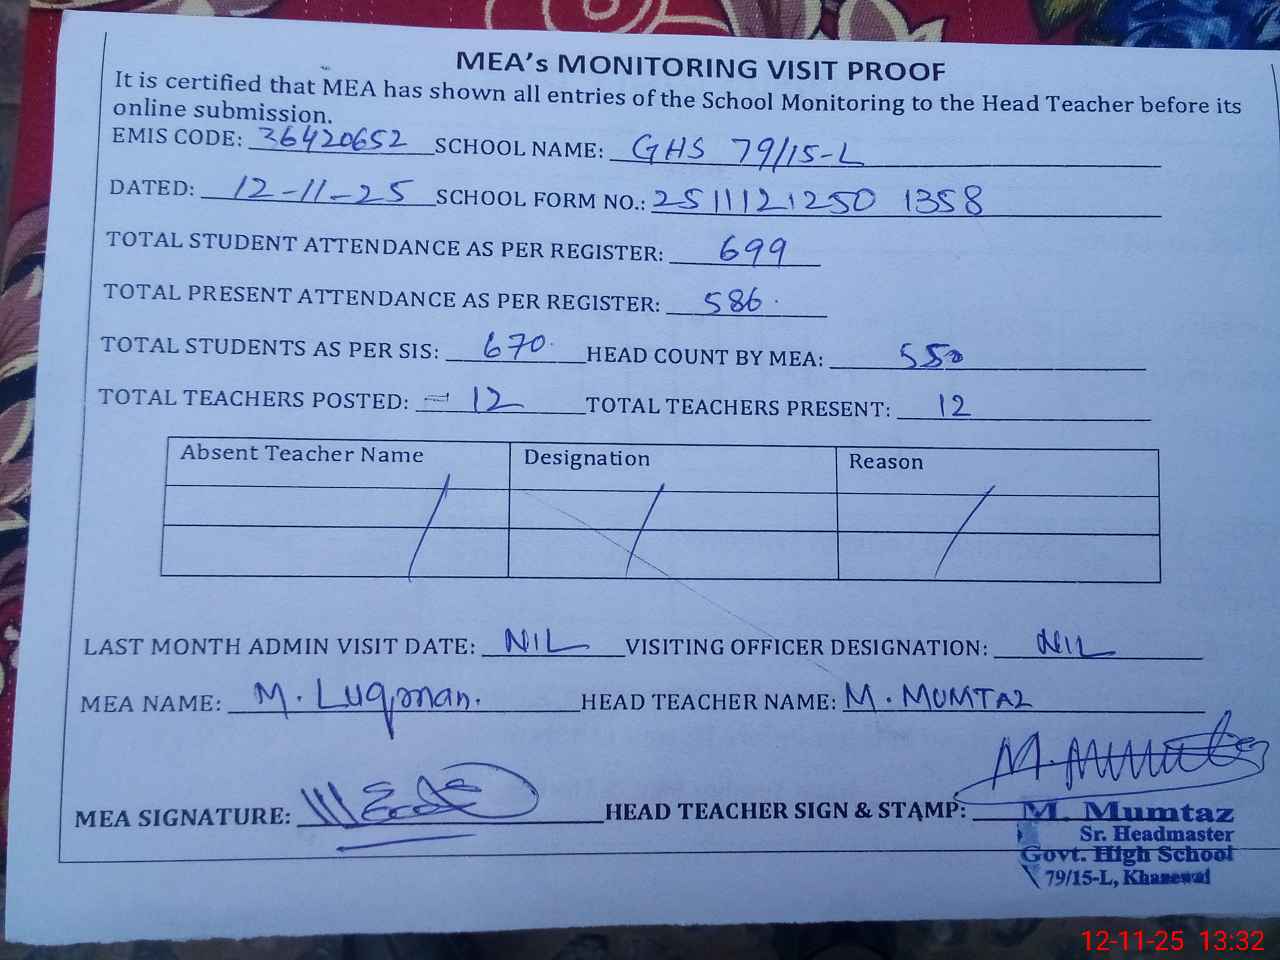 MEA's MONITORING VISIT PROOF
It is certified that MEA has shown all entries of the School Monitoring to the Head Teacher before its
online submission.
EMIS CODE: 36420652 SCHOOL NAME: GHS 79/15-L
DATED: 12-11-25 SCHOOL FORM NO.: 2511121250 1358
TOTAL STUDENT ATTENDANCE AS PER REGISTER: 699
TOTAL PRESENT ATTENDANCE AS PER REGISTER: 586.
TOTAL STUDENTS AS PER SIS: 670. HEAD COUNT BY MEA: 550
TOTAL TEACHERS POSTED: 12 TOTAL TEACHERS PRESENT: 12
Absent Teacher Name Designation Reason
LAST MONTH ADMIN VISIT DATE: NIL VISITING OFFICER DESIGNATION: NIL
MEA NAME: M. Luqman. HEAD TEACHER NAME: M. MUMTAZ
MEA SIGNATURE: HEAD TEACHER SIGN & STAMP: M. Mumtaz
M. Mumtaz
Sr. Headmaster
Govt. High School
79/15-L, Khanewal
12-11-25 13:32